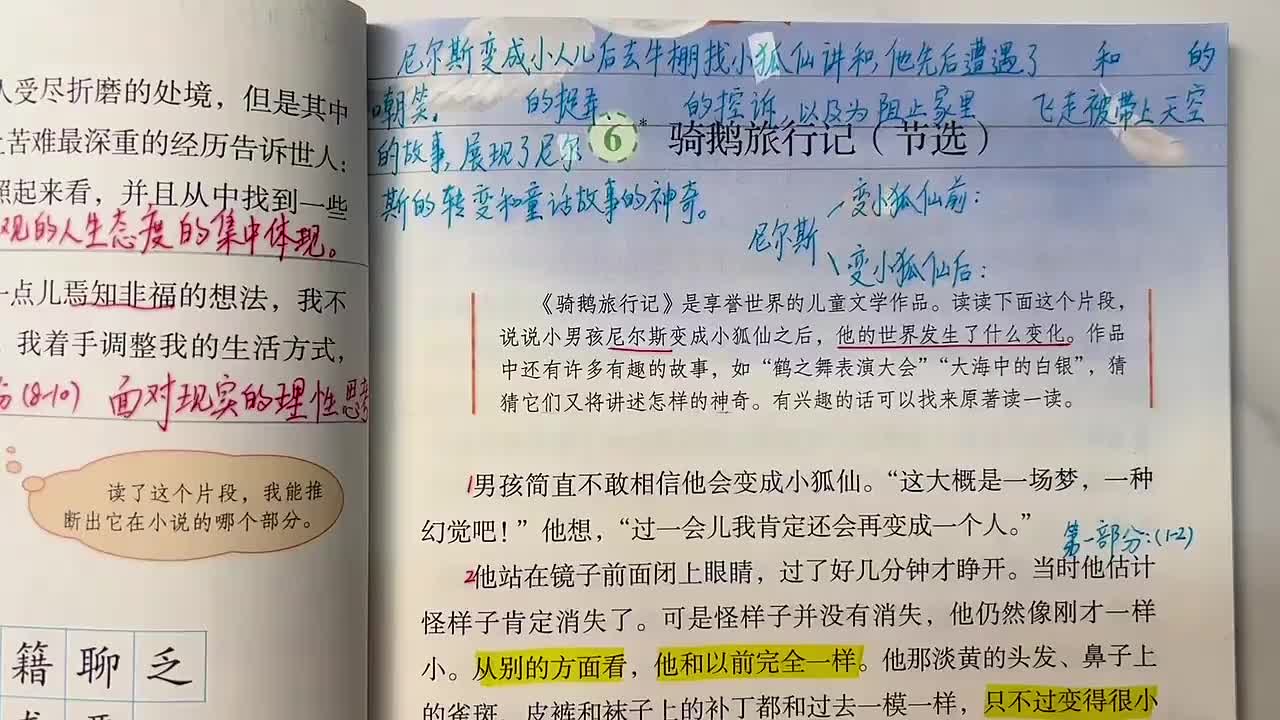 人受尽折磨的处境，但是其中
苦难最深重的经历告诉世人：
照起来看，并且从中找到一些
观的人生态度的集中体现。
一点儿焉知非福的想法，我不
我着手调整我的生活方式，
(8-10) 面对现实的理性思考
读了这个片段，我能推
断出它在小说的哪个部分。
籍 聊 乏
尼尔斯变成小人儿后去牛棚找小狐仙讲和，他先后遭遇了 和 的
嘲笑。 的捉弄、 的控诉，以及为阻止家里 飞走被带上天空
的故事，展现了尼尔
斯的转变和童话故事的神奇。
6* 骑鹅旅行记（节选）
尼尔斯
变小狐仙前：
变小狐仙后：
《骑鹅旅行记》是享誉世界的儿童文学作品。读读下面这个片段，
说说小男孩尼尔斯变成小狐仙之后，他的世界发生了什么变化。作品
中还有许多有趣的故事，如“鹤之舞表演大会”“大海中的白银”，猜
猜它们又将讲述怎样的神奇。有兴趣的话可以找来原著读一读。
1男孩简直不敢相信他会变成小狐仙。“这大概是一场梦，一种
幻觉吧！”他想，“过一会儿我肯定还会再变成一个人。”
第一部分：(1-2)
2他站在镜子前面闭上眼睛，过了好几分钟才睁开。当时他估计
怪样子肯定消失了。可是怪样子并没有消失，他仍然像刚才一样
小。从别的方面看，他和以前完全一样。他那淡黄的头发、鼻子上
的雀斑、皮裤和袜子上的补丁都和过去一模一样，只不过变得很小